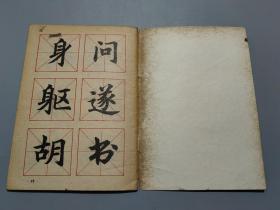 问遂书
身躯胡